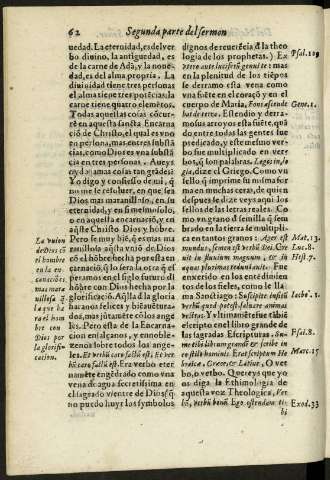 62
Segunda parte del sermon
uedad. La eternidad, es del ver
bo diuino, la antiguedad, es
de la carne de Adã, y la noue
dad, es del alma propria. La
diuinidad tienes tres personas
el alma tiene tres potẽcias; la
carne tiene quatro elemẽtos.
Todas aquellas cosas cõcur
rẽ en aquesta sancta Encarna
ciõ de Christo, el qual es vno
en persona, mas con tres substã
cias, como Dios es vna substã
cia en tres personas.
y digo y confiesso de mi, q̃
no me se resoluer, en que, seã
Dios mas marauilloso, en su
eternidad, y en si mesmo solo,
o en aquella encarnació, y en
aq̃lle Christo Dios y hõbre.
Pero se muy biẽ, q̃ es mas ma
rauillosa aq̃sta vniõ de Dios
cõ el hõbre hecha pura esta en
carnaciõ, q̃ lo sera la otra q̃ es
peramos en el siglo futuro dl
hõbre con Dios hecha por la
glorificaciõ. Aq̃lla dl la gloria
haranos felices y biẽauẽtura
dos, mas jũtarnos cõ los ange
les. Pero esta de la Encarna
cion en salçanos, y ennoble-
zenos sobre todos los ange-
les. Et verbũ caro factũ est, Et ver
bũ caro factũ est. Era verbo eter
namẽte engẽdrado como vna
vena de agua secretissima en
el sagrado vientre de Dios; q̃
no puedo huyr los symbolos
La vnion
de Dios cõ
el hombre
en la en
carnaciõ es
mas mara
uillosa q̃
la que ha
ra el hom
bre con
Dios por
la glorifi-
cacion.
dignos de reuerẽcia dl la theo
logia de los prophetas.) Ex
vtero ante luciferũ genui te: mas
en la plenitud de los tiẽpos
se derrama como vna vena
q̃ sube fuente en el coraçõ y en el
cuerpo de Maria, Fons ascende
bat de terra. Estendio y derra-
mo sus aroyos esta fuẽte, quã
do entre todas las gentes fue
predicado, y este mesmo ver-
bo fue multiplicado en verbos
bos, q̃ son palabras. Logos, in logia,
dize el Griego. Como vn
sello q̃ imprime su misma for
ma en muchas ceras, de quien
despues se dize veys aqui los
sellos de las letras reales. O co
mo vn grano dl semilla q̃ sem
brado en la tierra se multipli
ca en tantos granos: Ager est
mundus, semen est verbũ Dei. Cre
uit in fluuium magnum, & in
aquas plurimas redundauit. Fue
encerrido en los entẽdimien
tos de los fieles, como le lla
ma Sanctiago: Suscipite insitũ
verbũ quod potest saluare animas
vestras. Y vltimamẽte fue tãbiẽ
escripto en el libro grande de
las sagradas Escripturas. Su-
me tibi librum grande & scribe in
eo stilo hominis. Erat scriptum He
braice, Græce, & Latine. O ver
bo, o verbo. Quereys que yo os
diga la Ethimologia de
aquesta voz Theologica, Ver
bũ, verbũ bonũ. Ego ostendam ti-
bi
Psal. 109
Gene. 1.
Mat. 13.
Luc. 8.
Hest. 7.
Iacob. 1.
Psal. 8.
Marc. 15
Exod. 33